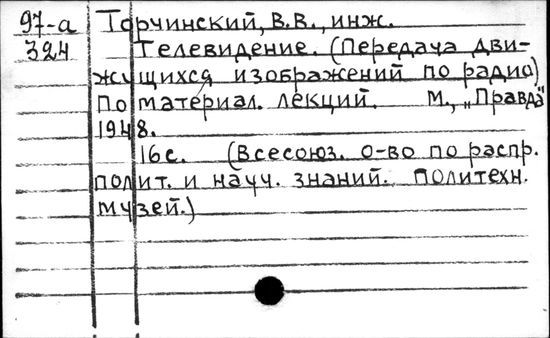 97-а Торчинский, В.В., инж.
324 Телевидение. (Передача дви-
жущихся изображений по радио)
По материал. лекций. М., „Правда"
1948.
16 с. (Всесоюз. о-во по распр.
полит. и науч. знаний. Политехн.
музей.)